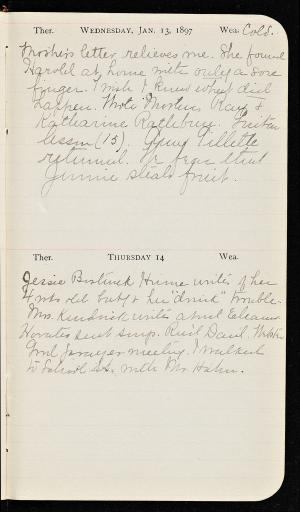 Ther. WEDNESDAY, JAN. 13, 1897 Wea. Cold.
Mother's letter relieves me. She found
Harold at home with only a sore
finger. I wish I knew what did
happen. Wrote Mother, Ray &
Katharine Rathburn. Guitar
lesson (13). Gillette
returned. We fear that
Jennie steals fruit.
Ther. THURSDAY 14 Wea.
Jessie Bostwick Hume writes of her
4 wks old baby & her "drink" trouble.
Mrs. Kendrick writes about Eleanor
Horatio sent songs. Rec'd Daniel Webster
prayer meeting. I walked
to School St. with Mr. Hahn.